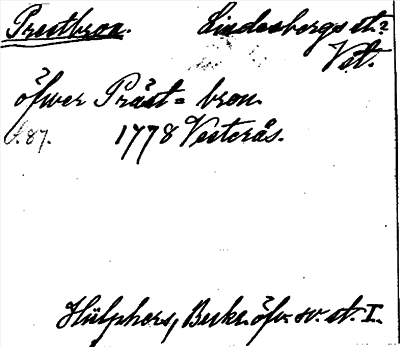 Prestbron. Lindesbergs st.?
Vst.
öfver Präst=bron.
S. 87. 1778 Vesterås.
Hülphers, Beskr. öfv. sv. st. I.